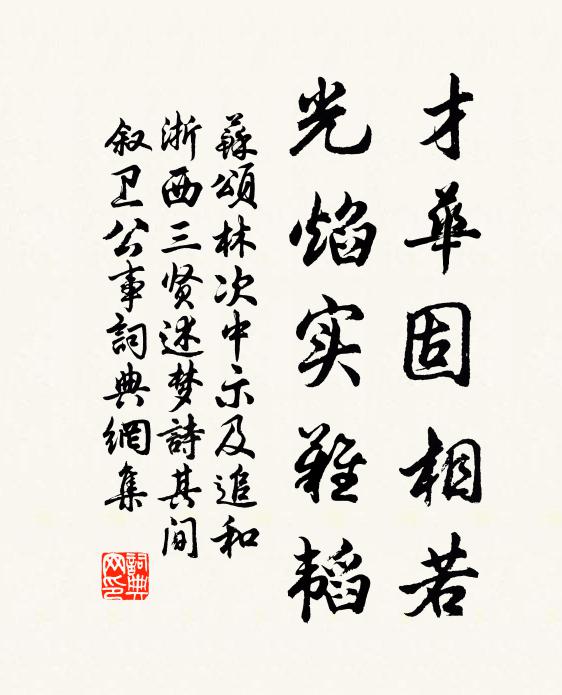 才華固相若
光焰实難韬
蘇頌林次中示及追和
浙西三贤述梦詩其间
叙卫公事詞典網集
詞典
网印